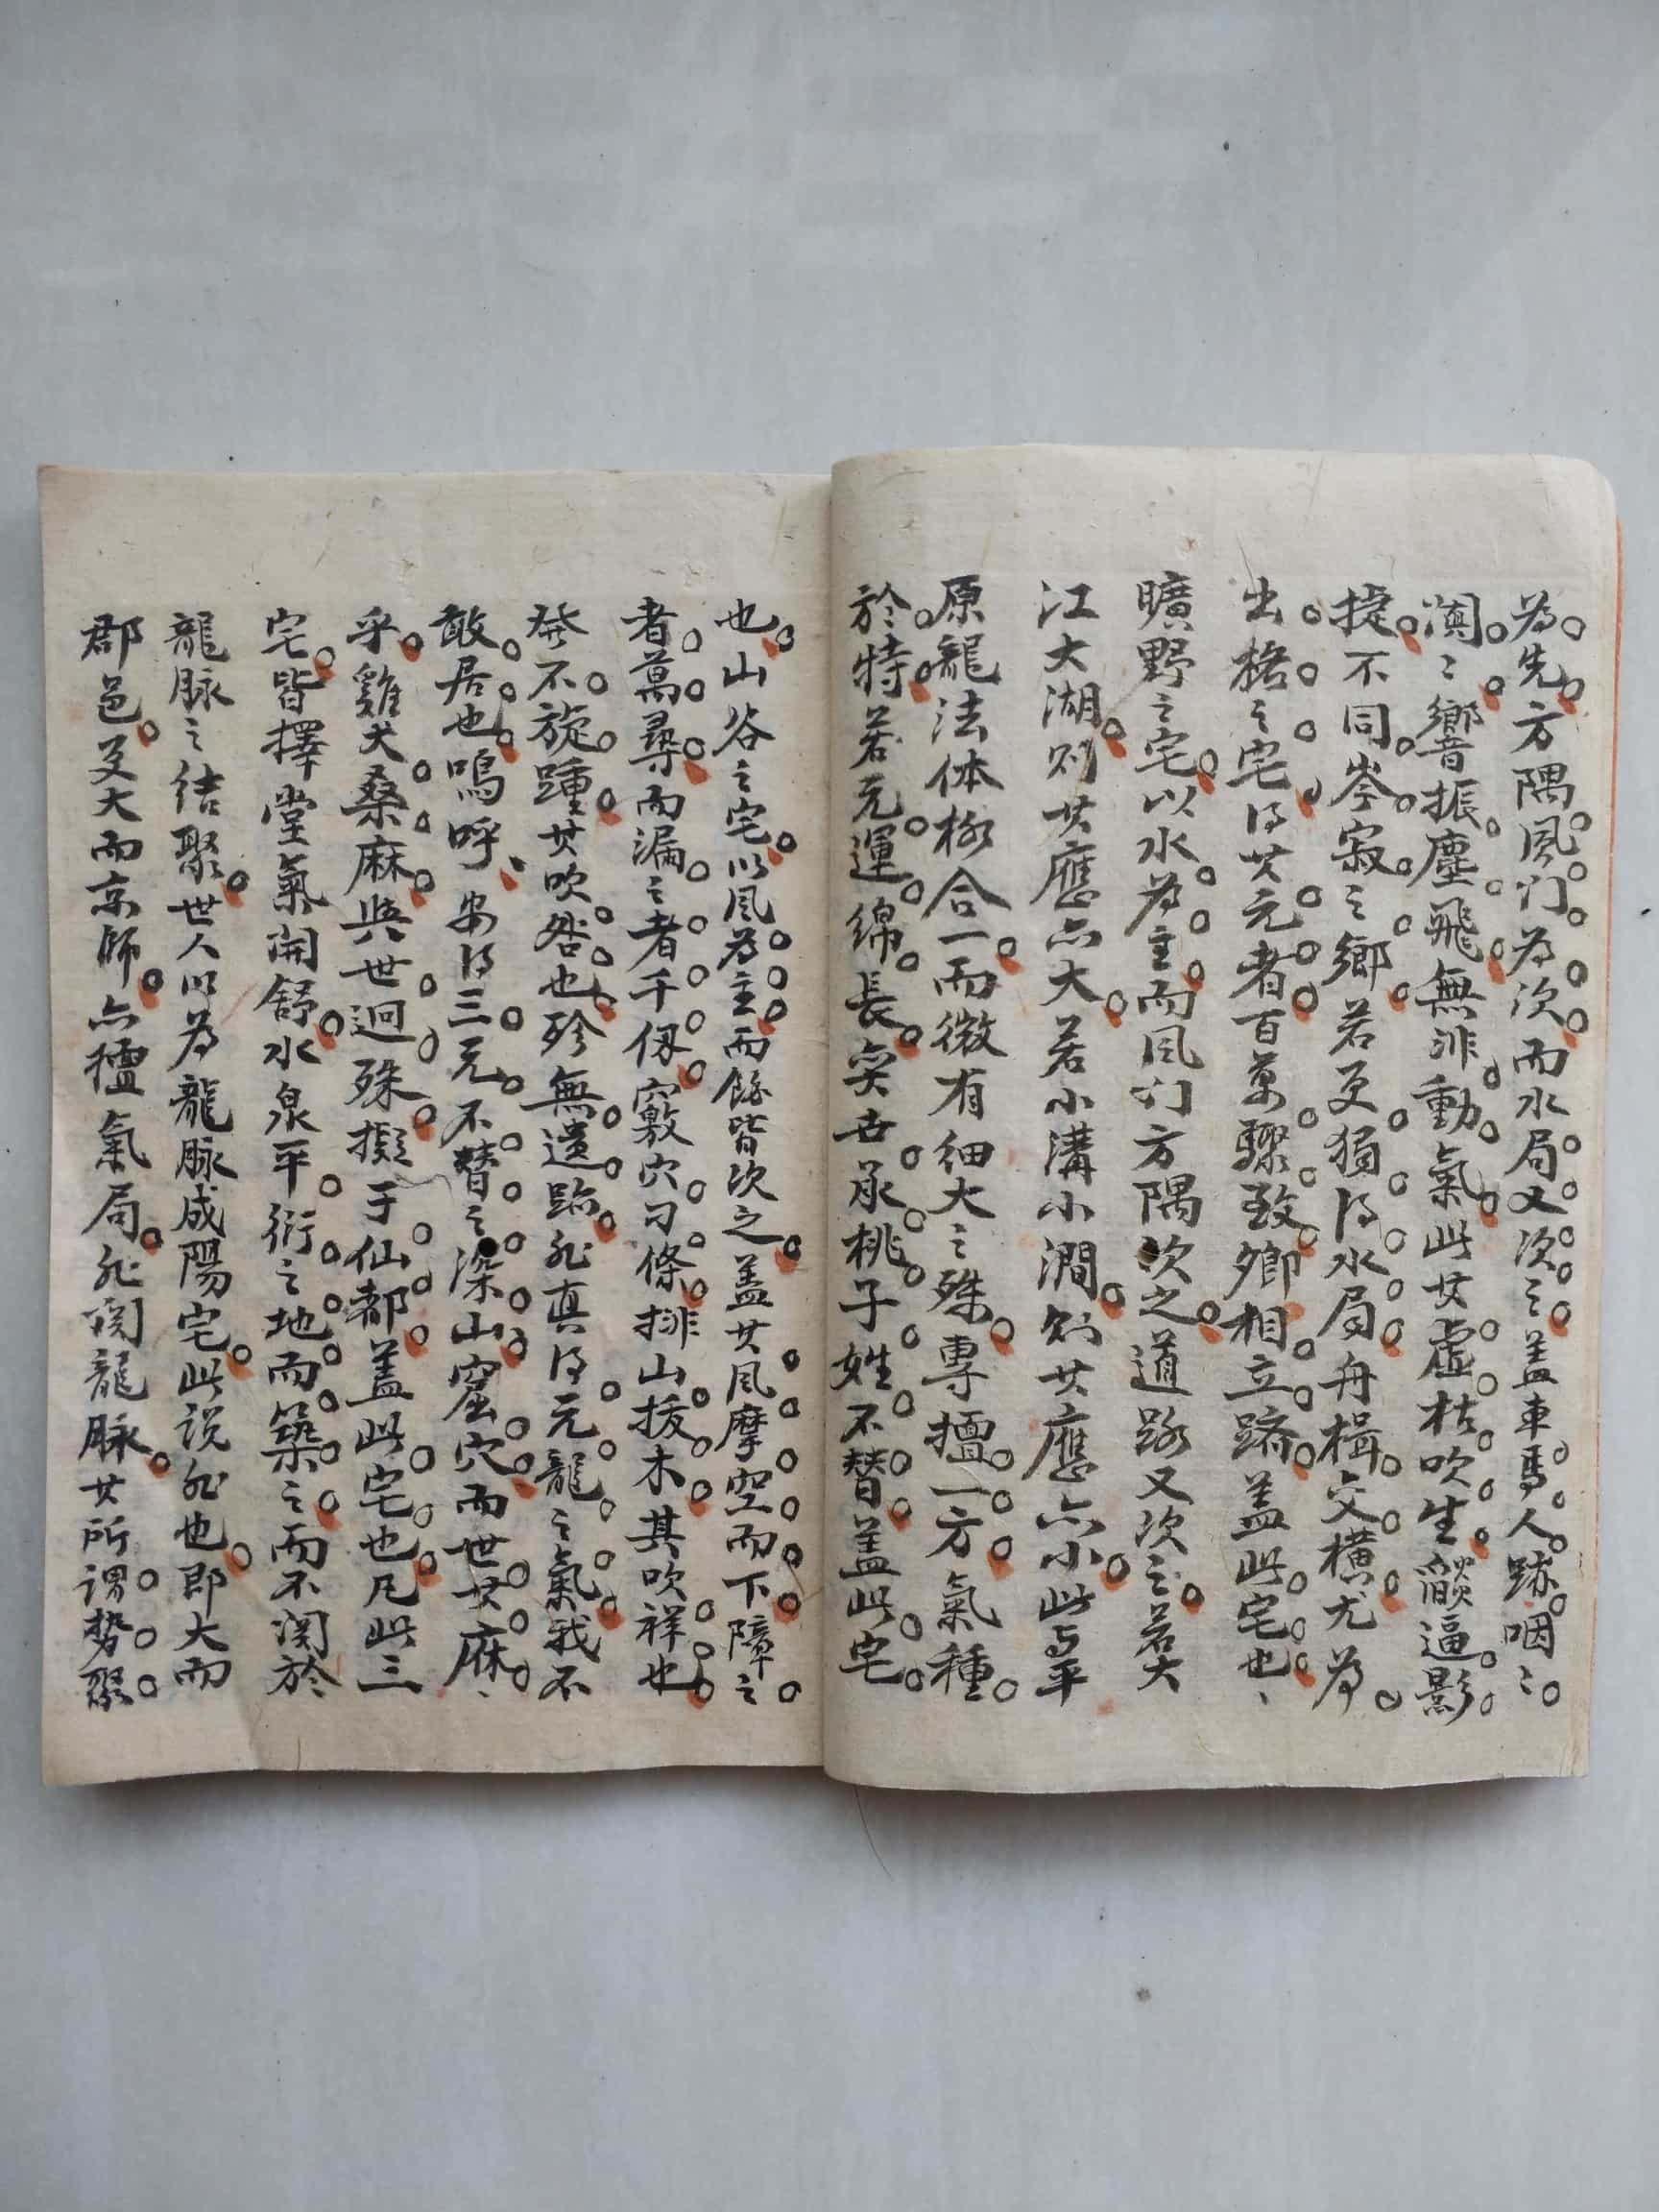 為先方隅風门為次而水局又次之盖車馬人跡咽〻
闐〻響振塵飛無非動氣此其虚枯吹生
捷不同岑寂之鄉若更獨得水局舟楫交横尤為
出格之宅得其元者百萬驟致卿相立躋盖此宅也
曠野之宅以水為主而风门方隅次之道路又次之若大
江大湖则其應亦大若小溝小澗则其應亦小此与平
原龍法体格合一而微有细大之殊專擅一方氣種
於特若元運綿長奕世承桃子姓不替盖此宅
也山谷之宅以風為主而餘皆次之盖其風摩空而下障之
者萬尋而漏之者千仞竅穴刁條排山拔木其吹祥也
發不旋踵其吹咎也殄無遺跡非真得元龍之氣我不
敢居也嗚呼安得三元不替之深山窟穴而世其麻
乎雞犬桑麻與世迥殊擬于仙都盖此宅也凡此三
宅皆擇堂氣開舒水泉平衍之地而築之而不関於
龍脉之结聚世人以為龍脉成陽宅此说非也即大而
郡邑更大而京師亦擅氣局非関龍脉其所谓势聚